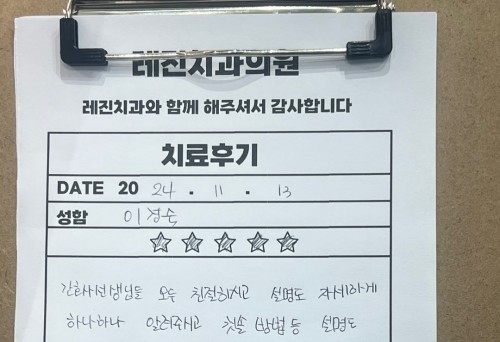 레진치과의원
레진치과와 함께 해주셔서 감사합니다
치료후기
DATE 20 24 . 11 . 13
성함 이경숙
간호사선생님들 모두 친절하시고 설명도 자세하게
하나하나 알려주시고 칫솔 방법 등 설명도